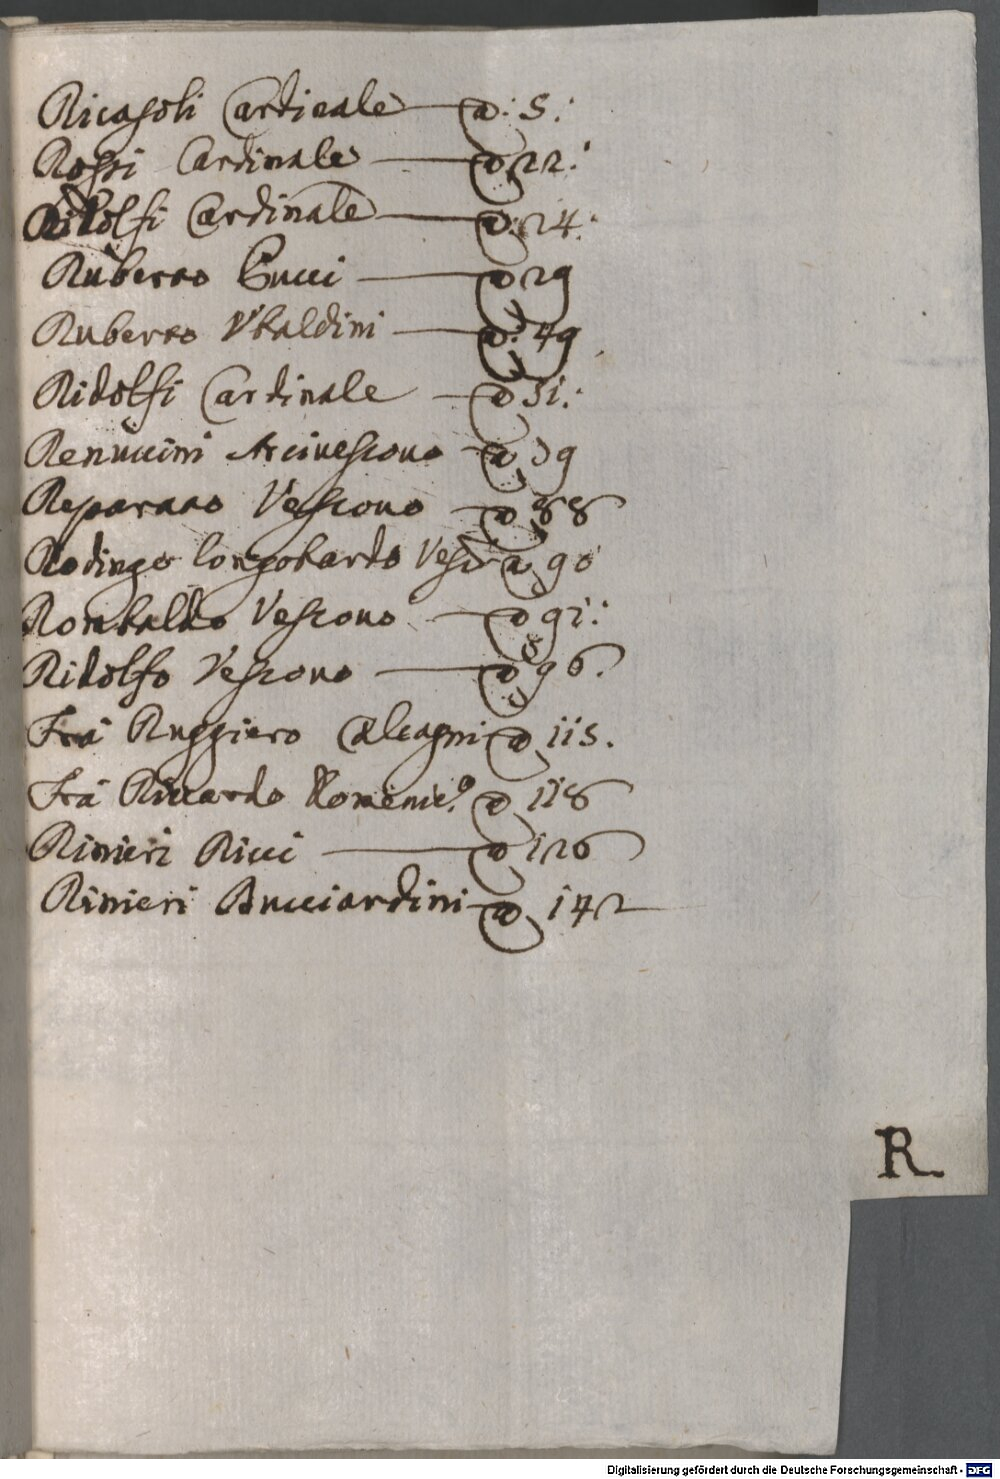 Ricasoli Cardinale a: 5:
Rossi Cardinale a 22:
Ridolfi Cardinale a: 24:
Ruberto Pucci a 29
Ruberto Vbaldini a: 49
Ridolfi Cardinale a 31:
Renuccini Arciuescouo a 39
Reparato Vescouo a 88
Rodingo longobardo Vesc° a 90
Rombaldo Vescouo a 91:
Ridolfo Vescouo a 96.
Frà Ruggiero Calcagni a 115.
Frà Riccardo Domenic.° a 118
Rinieri Ricci a 126
Rinieri Bucciardini a 142
R
Digitalisierung gefördert durch die Deutsche Forschungsgemeinschaft - DFG